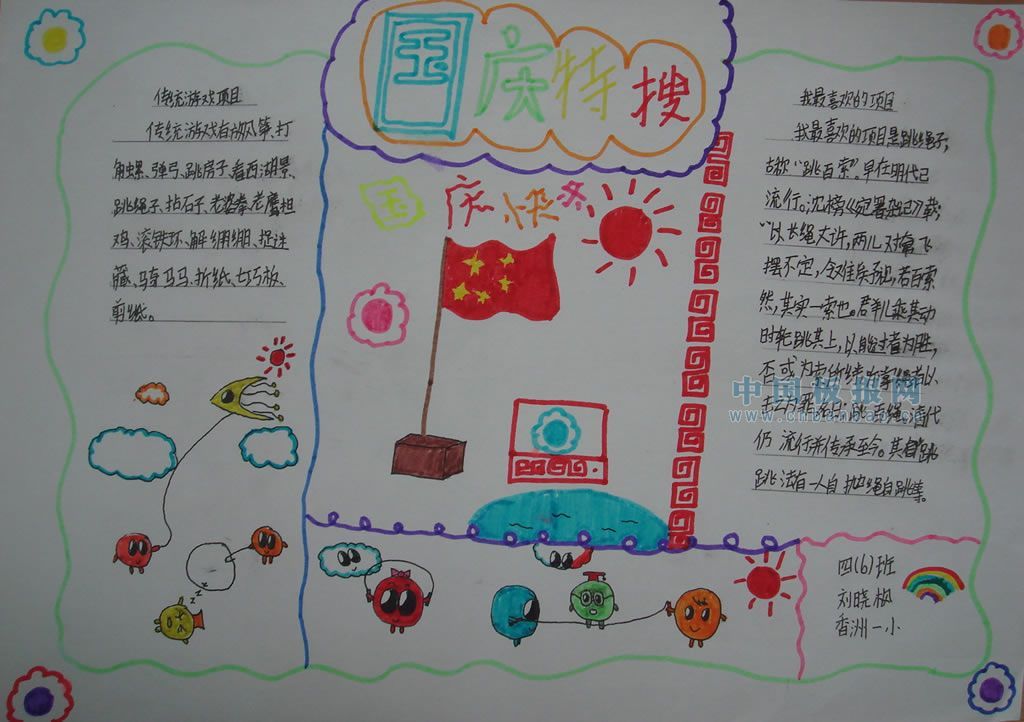 国庆特搜
传统游戏项目
传统游戏有放风筝、打
角螺、弹弓、跳房子、看西湖景、
跳绳子、抬石子、老婆拳、老鹰担
鸡、滚铁环、解绷绷、捉迷
藏、骑马马、折纸、七巧板、
剪纸。
国庆快
我最喜欢的项目
我最喜欢的项目是跳绳子,
古称“跳百索”。早在明代已
流行。沈榜《宛署杂记》载:
“以长绳丈许,两儿对拿飞
摆不定,令难凖视,若百索
然,其实一索也。群儿乘其动
时轮跳其上,以能过者为胜,
否或为索所绊
清代
仍流行并传承至今。其
跳法有一人自抛绳自跳
中国板报网
www.cnbanbao.cn
四(6)班
刘晓枫
香洲一小